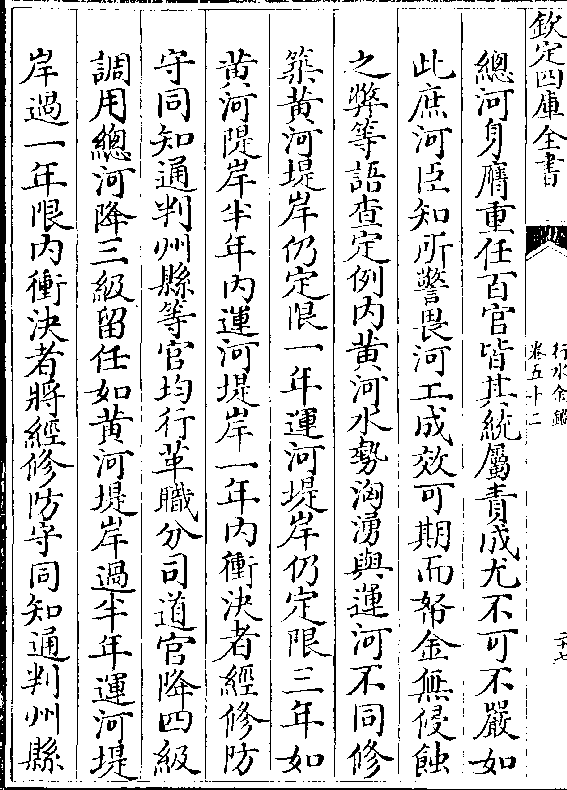 欽定四庫全書
行水金鑑
卷五十二
二十七
總河身膺重任百官皆其統屬責成尤不可不嚴如
此庶河臣知所警畏河工成效可期而帑金無侵蝕
之弊等語查定例内黃河水勢洶湧與運河不同修
築黃河堤岸仍定限一年運河堤岸仍定限三年如
黃河隄岸半年内運河堤岸一年内衝決者經修防
守同知通判州縣等官均行革職分司道官降四級
調用總河降三級留任如黃河堤岸過半年運河堤
岸過一年限内衝決者將經修防守同知通判州縣